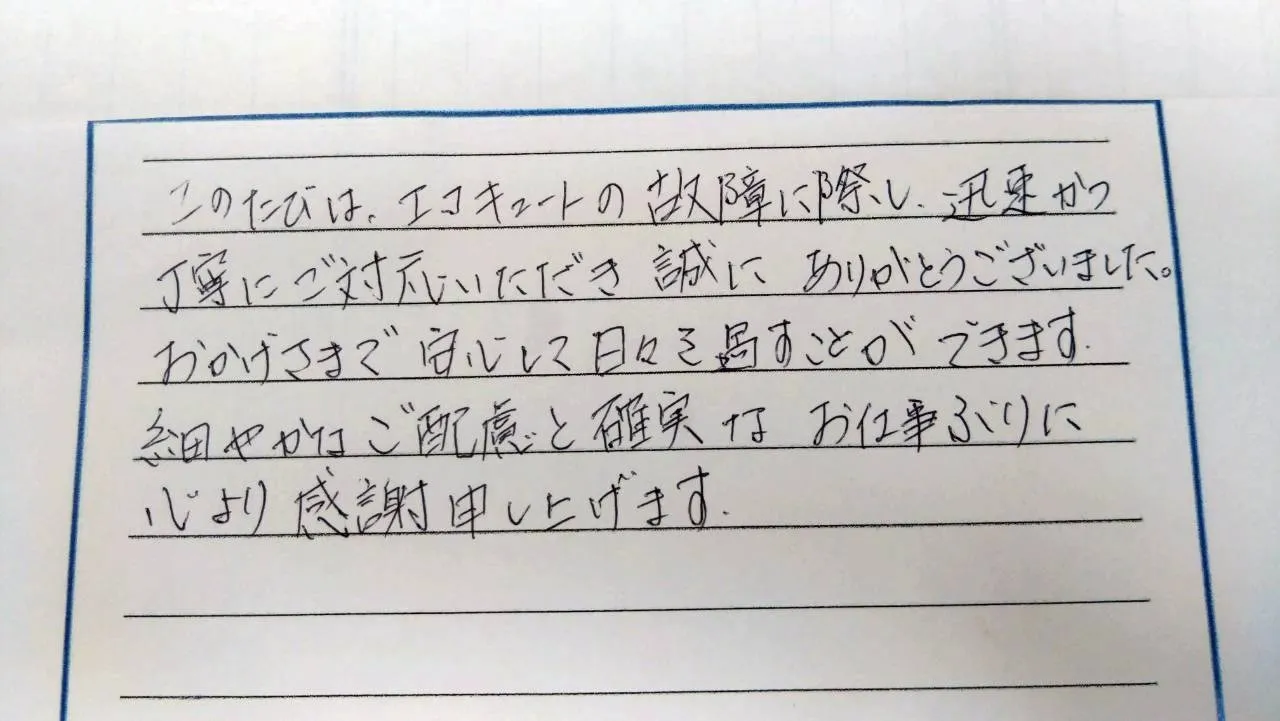 このたびは、エコキュートの故障に際し、迅速かつ
丁寧にご対応いただき 誠に ありがとうございました。
おかげさまで 安心して 日々を過すことが できます.
細やかなご配慮と確実な お仕事ぶりに
心より 感謝申し上げます.